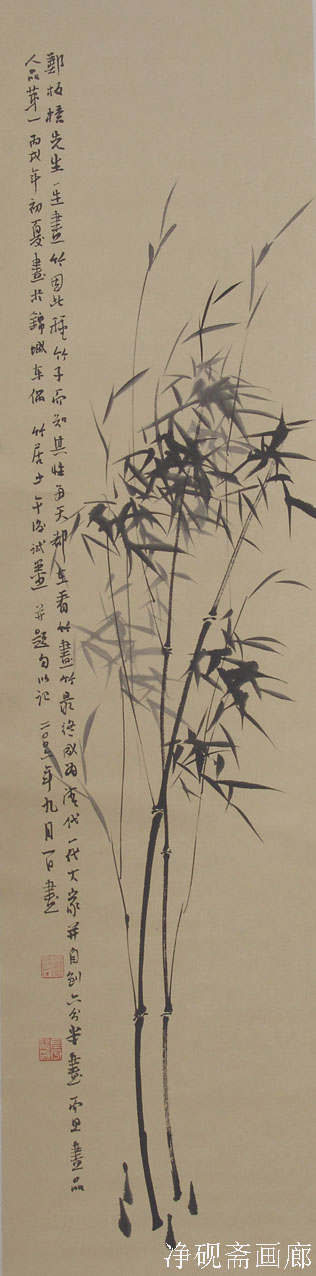 鄭板橋先生一生畫竹因此種竹子而知其性每天都在看竹畫竹最終成為清代一代大家並自創六分半畫而且畫品
人品第一丙戌年初夏畫於錦城東偶竹居士午後試畫並題句以記 二〇年九月一日畫
净砚斋画廊